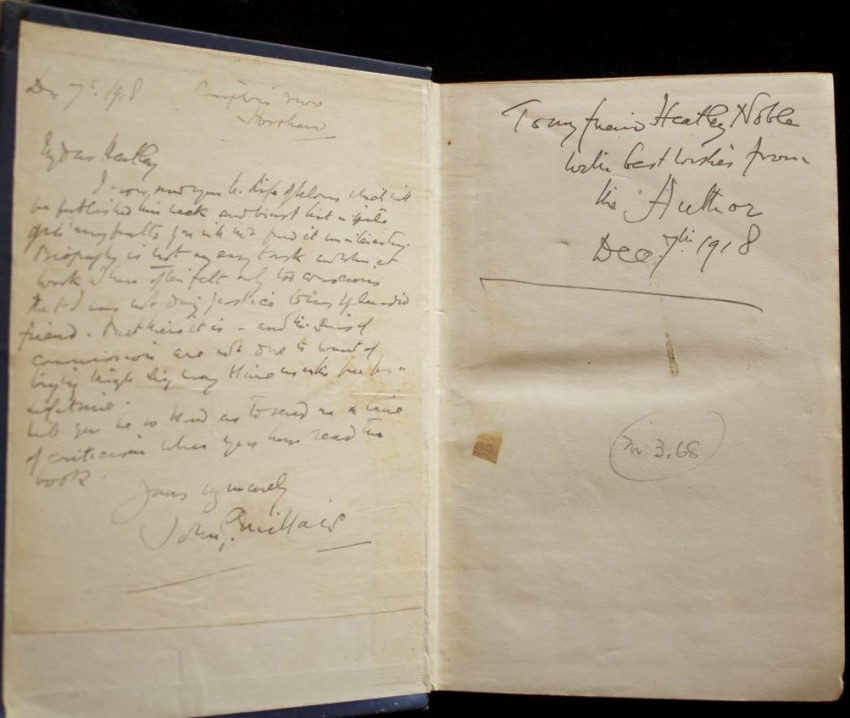 Dec 7th 1918
Compton's Brow
Horsham
My dear Heatley
I now send you the Life of Selous which will
be published this week and trust that in spite
of its many faults you will not find it uninteresting
Biography is not an easy task and when at
work I have often felt only too conscious
that I was not doing justice to his splendid
friend. But here it is - and the sins of
commission are not due to want of
trying
lifetime.
Will you be so kind as to send me a line
of criticism when you have read the
book.
Yours sincerely
John G. Millais
To my friend Heatley Noble
with best wishes from
the Author
Dec 7th 1918
3.68